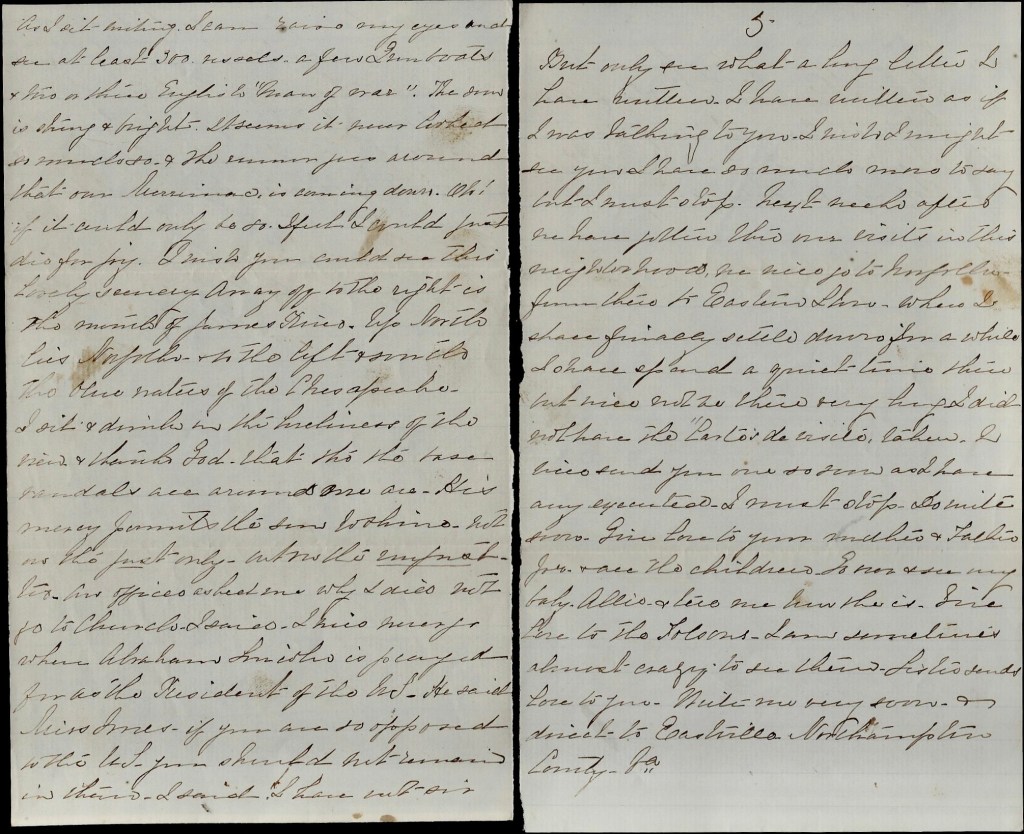 As I sit writing. I can raise my eyes and
see at least 300 vessels. a few Gun boats
& two or three English "Man of war". The sun
is shing & bright. It seems it never looked
so much so. & the rumor goes around
that our Merrimac, is coming down. Oh!
if it could only be so. I feel I could just
die for joy. I wish you could see this
lovely scenery Away off to the right is
the mouth of James River. Up North
lies Norfolk. & to the left & south
the blue waters of the Chesapeake.
I sit & drink in the loveliness of the
view & thank God. that tho the base
vandals are around me are. His
mercy permits the sun to shine. not
on the just only. but on the unjust.
too. An officer asked me why I did not
go to Church. I said. I will never go
where Abraham Lincoln is prayed
for as the President of the US. He said
Miss Jones. if you are so opposed
to the US. you should not remain
in them. I said, I have not sir
5
But only see what a long letter I
have written. I have written as if
I was talking to you. I wish I might
see you I have so much more to say
but I must stop. Next week after
we have gotten thro our visits in this
neighborhood, we will go to Norfolk.
from there to Eastern Shore. where I
shall finally settle down for a while
I shall spend a quiet time there
but will not be there very long I did
not have the "Carto's de visite, taken. I
will send you one so soon as I have
any executed. I must stop. Do write
soon. Give love to your mother & Father
Jr. & all the children Go now & see my
baby. Allie. & tell me how she is. Give
love to the Tolsons. I am sometimes
almost crazy. to see them. Sister sends
love to you. Write me very soon. &
direct to Eastville Northampton
County. Va